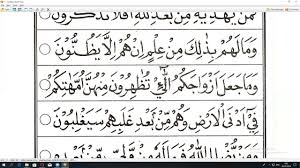 فَمَنْ يَهْدِيهِ مِنْ بَعْدِ اللهِ اَفَلَا تَذَكَّرُونَ
وَمَا لَهُمْ بِذٰلِكَ مِنْ عِلْمٍ اِنْ هُمْ اِلَّا يَظُنُّونَ
وَمَا جَعَلَ اَزْوَاجَكُمُ الّٰٓـِٔي تُظٰهِرُونَ مِنْهُنَّ اُمَّهٰتِكُمْ
فِىٓ اَدْنَى الْاَرْضِ وَهُمْ مِنْ بَعْدِ غَلَبِهِمْ سَيَغْلِبُونَ